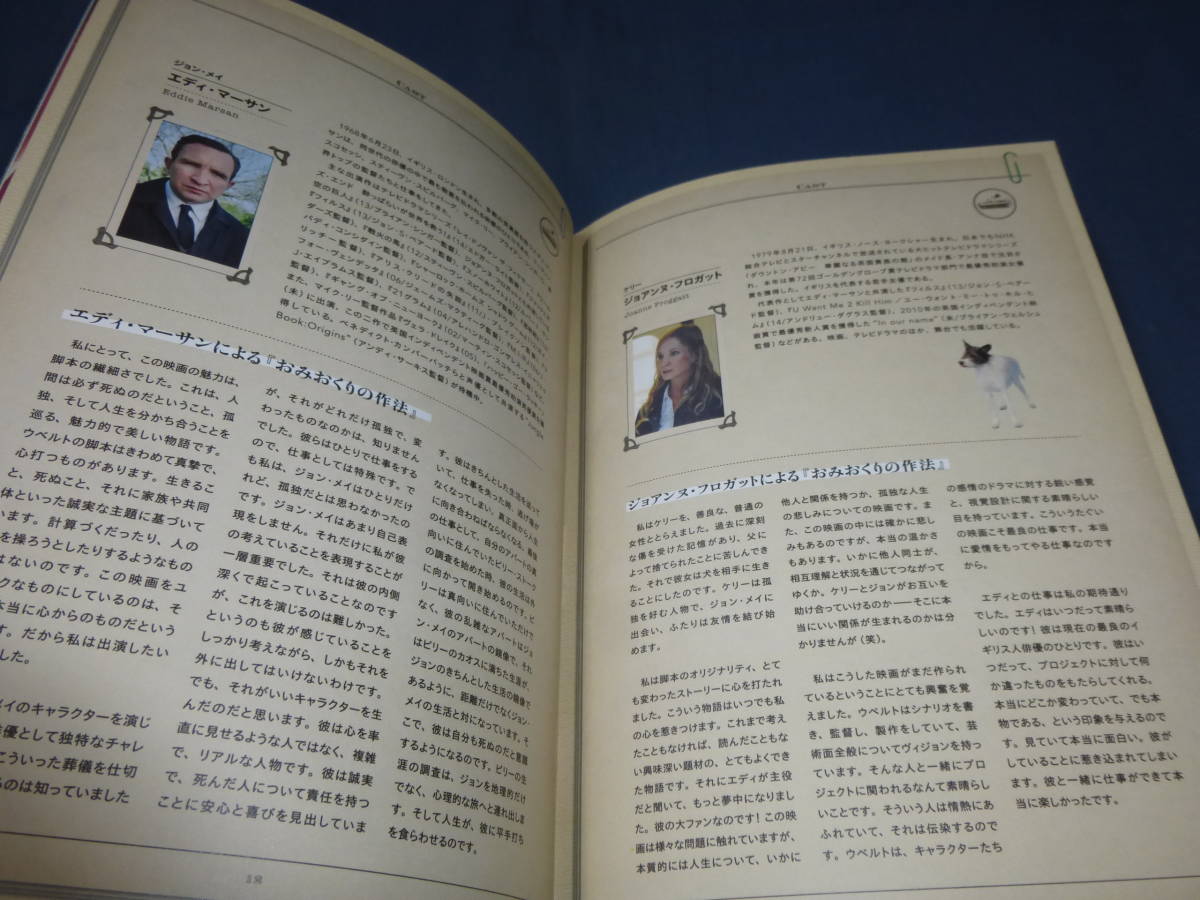 CAST
ジョン・メイ
エディ・マーサン
Eddie Marsan
1968年6月23日、イギリス・ロンドン生まれ。
エディ・マーサンによる『おみおくりの作法』
私にとって、この映画の魅力は、
脚本の繊細さでした。これは、人
間は必ず死ぬのだということ、孤
独、そして人生を分かち合うことを
巡る、魅力的で美しい物語です。
ウベルトの脚本はきわめて真摯で、
心打つものがあります。生きるこ
と、死ぬこと、それに家族や共同
体といった誠実な主題に基づいて
います。計算づくだったり、人の
を操ろうとしたりするようなもの
はないのです。この映画をユ
クなものにしているのは、そ
本当に心からのものだという
す。だから私は出演したい
した。
メイのキャラクターを演じ
俳優として独特なチャレ
こういった葬儀を仕切
るのは知っていました
が、それがどれだけ孤独で、変
わったものなのかは、知りません
でした。彼らはひとりで仕事をする
ので、仕事としては特殊です。で
も私は、ジョン・メイはひとりだけ
れど、孤独だとは思わなかったの
です。ジョン・メイはあまり自己表
現をしません。それだけに私が彼
の考えていることを表現することが
一層重要でした。それは彼の内側
深くで起こっていることなのです
が、これを演じるのは難しかった。
というのも彼が感じていることを
しっかり考えながら、しかもそれを
外に出してはいけないわけです。
でも、それがいいキャラクターを生
んだのだと思います。彼は心を率
直に見せるような人ではなく、複雑
で、リアルな人物です。彼は誠実
で、死んだ人について責任を持つ
ことに安心と喜びを見出していま
す。彼はきちんとした生活を送って
いて、仕事を失った時、逃げ場が
なくなってしまい、真正面から人生
に向き合わねばならなくなる。最後
の仕事として、自分のアパートの真
向いに住んでいたビリー・ストーク
の調査を始めた時、彼の生活は外
に向かって開き始めるのです。ビ
リーは真向いに住んでいただけで
なく、彼の乱雑なアパートはジョ
ン・メイのアパートの鏡像で、それ
はビリーのカオスに満ちた生涯が、
ジョンのきちんとした生活の鏡像で
あるように、距離だけでなくジョン・
メイの生活と対になっています。そ
こで、彼は自分も死ぬのだと意識
するようになるのです。ビリーの生
涯の調査は、ジョンを地理的だけ
でなく、心理的な旅へと連れ出しま
す。そして人生が、彼に平手打ち
を食らわせるのです。
18
CAST
ケリー
ジョアンヌ・フロガット
Joanne Froggatt
ジョアンヌ・フロガットによる『おみおくりの作法』
私はケリーを、善良な、普通の
女性ととらえました。過去に深刻
な傷を受けた記憶があり、父に
よって捨てられたことに苦しんでき
た。それで彼女は犬を相手に生き
ることにしたのです。ケリーは孤
独を好む人物で、ジョン・メイに
出会い、ふたりは友情を結び始
めます。
私は脚本のオリジナリティ、とて
も変わったストーリーに心を打たれ
ました。こういう物語はいつでも私
の心を惹きつけます。これまで考え
たこともなければ、読んだこともな
い興味深い題材の、とてもよくでき
た物語です。それにエディが主役
だと聞いて、もっと夢中になりまし
た。彼の大ファンなのです！この映
画は様々な問題に触れていますが、
本質的には人生について、いかに
他人と関係を持つか、孤独な人生
の悲しみについての映画です。ま
た、この映画の中には確かに悲し
みもあるのですが、本当の温かさ
もあります。いかに他人同士が、
相互理解と状況を通じてつながって
ゆくか、ケリーとジョンがお互いを
助け合っていけるのか――そこに本
当にいい関係が生まれるのかは分
かりませんが（笑）。
私はこうした映画がまだ作られ
ているということにとても興奮を覚
えました。ウベルトはシナリオを書
き、監督し、製作をしていて、芸
術面全般についてヴィジョンを持っ
ています。そんな人と一緒にプロ
ジェクトに関われるなんて素晴らし
いことです。そういう人は情熱にあ
ふれていて、それは伝染するので
す。ウベルトは、キャラクターたち
の感情のドラマに対する鋭い感覚
と、視覚設計に関する素晴らしい
目を持っています。こういうたぐい
の映画こそ最良の仕事です。本当
に愛情をもってやる仕事なのです
から。
エディとの仕事は私の期待通り
でした。エディはいつだって素晴ら
しいのです！彼は現在の最良のイ
ギリス人俳優のひとりです。彼はい
つだって、プロジェクトに対して何
か違ったものをもたらしてくれる。
本当にどこか変わっていて、でも本
物である、という印象を与えるので
す。見ていて本当に面白い。彼が
していることに惹き込まれてしまい
ます。彼と一緒に仕事ができて本
当に楽しかったです。